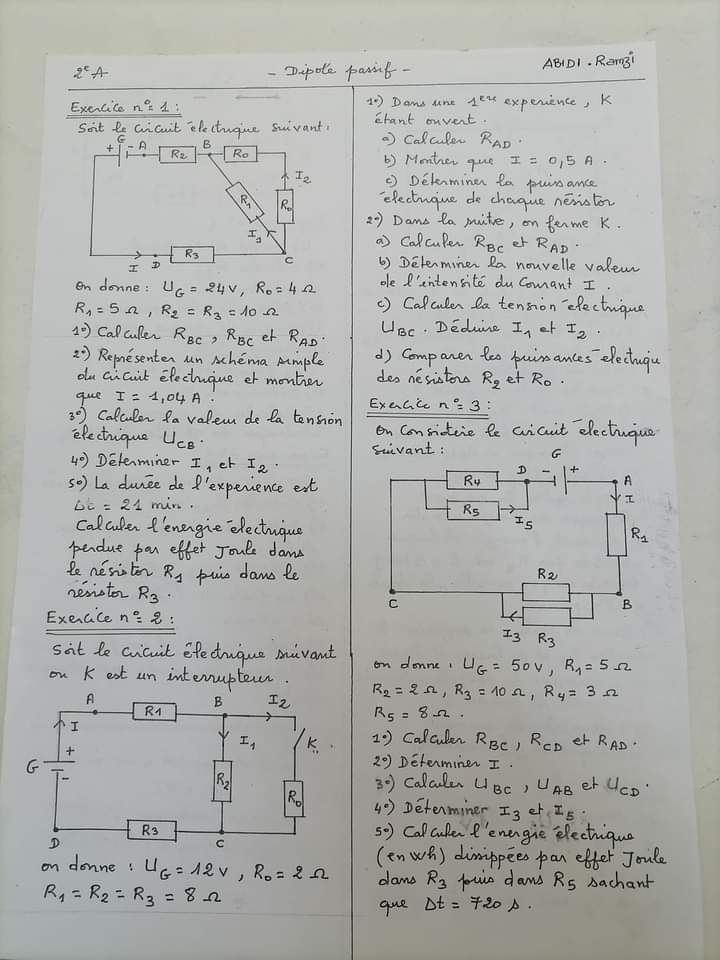 2e A
- Dipole passif -
ABIDI . Ramzi
Exercice n°= 1 :
Soit le circuit électrique suivant :
G
+ - A R2 B R0
I2
R1 R0
I1
I D R3 C
on donne : UG = 24V, R0 = 4 Ω
R1 = 5 Ω, R2 = R3 = 10 Ω
1°) Calculer RBC, RBC et RAD.
2°) Représenter un schéma simple
du circuit électrique et montrer
que I = 1,04 A.
3°) Calculer la valeur de la tension
électrique UCB.
4°) Déterminer I1 et I2.
5°) La durée de l'experience est
Δt = 21 min.
Calculer l'énergie électrique
perdue par effet Joule dans
le résistor R1 puis dans le
résistor R3.
Exercice n°= 2 :
Soit le circuit électrique suivant
ou K est un interrupteur.
A R1 B I2
I I1 K
G + - R2 R0
D R3 C
on donne : UG = 12V, R0 = 2 Ω
R1 = R2 = R3 = 8 Ω
1°) Dans une 1ere experience, K
étant ouvert.
a) Calculer RAD.
b) Montrer que I = 0,5 A.
c) Déterminer la puissance
électrique de chaque résistor
2°) Dans la suite, on ferme K.
a) Calculer RBC et RAD.
b) Déterminer la nouvelle valeur
de l'intensité du Courant I.
c) Calculer la tension électrique
UBC. Déduire I1 et I2.
d) Comparer les puissances électriqu
des résistors R2 et R0.
Exercice n°= 3 :
on Considère le circuit électrique
suivant :
G
R4 D - + A
R5 I5 I
R1
R2
C B
I3 R3
on donne : UG = 50V, R1 = 5 Ω
R2 = 2 Ω, R3 = 10 Ω, R4 = 3 Ω
R5 = 8 Ω.
1°) Calculer RBC, RCD et RAD.
2°) Déterminer I.
3°) Calculer UBC, UAB et UCD.
4°) Déterminer I3 et I5.
5°) Calculer l'energie électrique
(en Wh) dissippées par effet Joule
dans R3 puis dans R5 sachant
que Δt = 720 s.